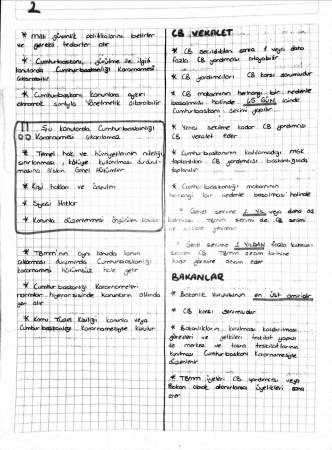 2
* Milli güvenlik politikalarını belirler
ve gerekli tedbirleri alır
* Cumhurbaşkanı, yürütme ile ilgili
konularda Cumhurbaşkanlığı Kararnamesi
çıkarabilir
* Cumhurbaşkanı kanunlara aykırı
olmamak şartıyla Yönetmelik çıkarabilir
!! Şu konularda Cumhurbaşkanlığı
Kararnamesi çıkarılamaz
* Temel hak ve hürriyetlerin niteliği
sınırlanması, kötüye kullanılması durdurul-
masına ilişkin Genel Hükümler
* Kişi hakları ve ödevleri
* Siyasi Haklar
* Kanunla düzenlenmesi öngörülen konular
* TBMM'nin aynı konuda kanun
çıkarması durumunda Cumhurbaşkanlığı
kararnamesi hükümsüz hale gelir
* Cumhurbaşkanlığı Kararnameleri
normlar hiyerarşisinde kanunların altında
yer alır
* Kamu Tüzel Kişiliği kanunla veya
Cumhurbaşkanlığı Kararnamesiyle kurulur
CB VEKALET
* CB seçildikten sonra 1 veya daha
fazla CB yardımcısı atayabilir
* CB yardımcıları CB karşı sorumludur
* CB makamının herhangi bir nedenle
boşalması halinde 45 GÜN içinde
Cumhurbaşkanı seçimi yapılır
* Yenisi seçilene kadar CB yardımcısı
CB vekalet eder
* Cumhurbaşkanının katılamadığı MGK
toplantıları CB yardımcısı başkanlığında
toplanılır
* Cumhurbaşkanlığı makamının
herhangi bir nedenle boşalması halinde
* Genel seçime 1 YIL veya daha az
kalmışsa TBMM seçimi de CB seçimi
ile birlikte yenilenir
* Genel seçime 1 YILDAN fazla kalmışsa
seçilen CB TBMM seçim tarihine
kadar görevine devam eder
BAKANLAR
* Bakanlık kuruluşunun en üst amiridir
* CB karşı sorumludur
* Bakanlıkların kurulması kaldırılması
görevleri ve yetkileri teşkilat yapısı
ile merkez ve taşra teşkilatlarının
kurulması Cumhurbaşkanı Kararnamesiyle
düzenlenir
* TBMM üyeleri CB yardımcısı veya
Bakan olarak atanırlarsa üyelikleri sona
erer